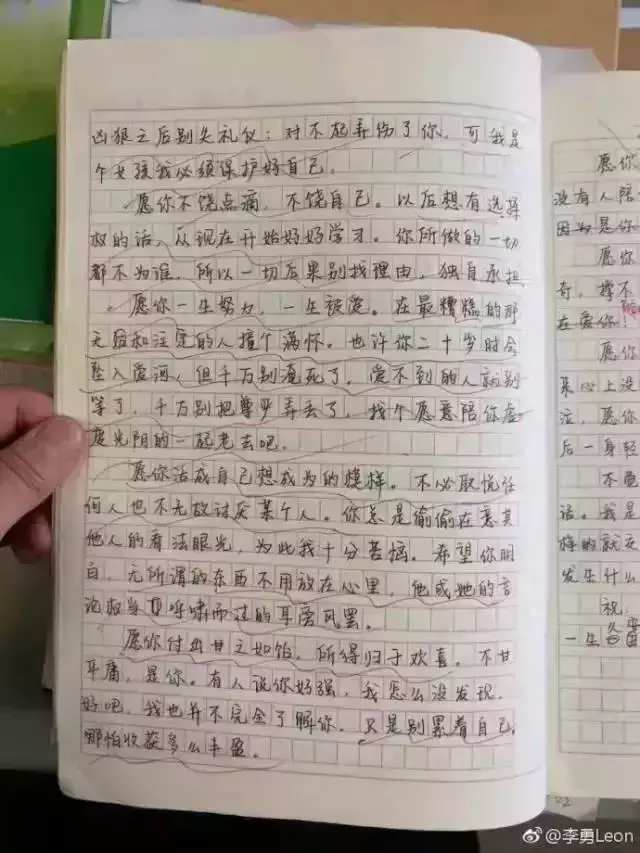 凶狠之后别失礼仪：对不起弄伤了你，可我是
个女孩我必须保护好自己。
愿你不饶点滴，不饶自己。以后想有选择
权的话，从现在开始好好学习。你所做的一切
都不为谁，所以一切后果别找理由，独自承担
愿你一生努力，一生被爱。在最糟糕的那
天后和注定的人撞个满怀。也许你二十岁时会
坠入爱河，但千万别淹死了，爱不到的人就别
等了，千万别把尊严弄丢了，找个愿意陪你虚
度光阴的一起老去吧。
愿你活成自己想成为的模样。不必取悦任
何人也不无故讨厌某个人。你总是偷偷在意其
他人的看法眼光，为此我十分苦恼。希望你明
白，无所谓的东西不用放在心里，他或她的言
论权当耳呼啸而过的耳旁风罢。
愿你付出甘之如饴，所得归于欢喜。不甘
平庸，是你。有人说你好强，我怎么没发现，
好吧，我也并不完全了解你，只是别累着自己，
哪怕收获多么丰盈。
愿你
没有人陪
因为是你
愿你
奇，撑不
在爱你
愿你
某心上没
泣，愿你
后一身轻
不
话。我是
发生什么
祝
一生
@李勇Leon